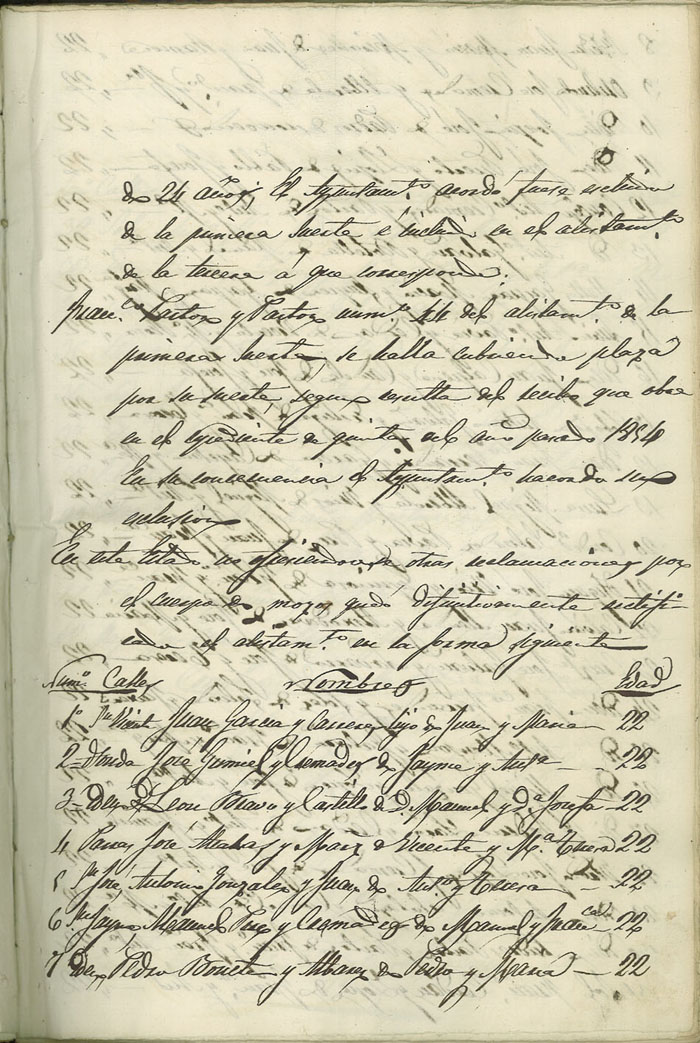 de 24 años; El Ayuntam.to acordó fuese escluido
de la primera suerte é incluido en el alistam.to
de la tercera á que corresponde.
Fran.co Pastor y Pastor num.o 44 del alistam.to de la
primera suerte, se halla cubriendo plaza
por su suerte, segun resulta del recibo que obra
en el espediente de quintas del año pasado 1854
En su consecuencia el Ayuntam.to acordó su
esclusion
En este estado no ofreciendose otras reclamaciones por
el cuerpo de mozos quedó difinitivamente rectifi-
cado el alistam.to en la forma siguiente
Num.o Calles Nombres Edad
1º Sn Vicente Juan Garcia y Carrera, hijo de Juan y Maria 22
2 José Gumiel y de Jayme y Ant.a 22
3 D. Leon Bravo y Castillo de D. Manuel y D.a Josefa 22
4 José y de Vicente y M.a Teresa 22
5 Sn José, Antonio Gonzalez y Juan de Ant.o y Teresa 22
6 Sn Jayme Manuel y de Manuel y Fran.ca 22
7 Pedro y de Pedro y Maria 22